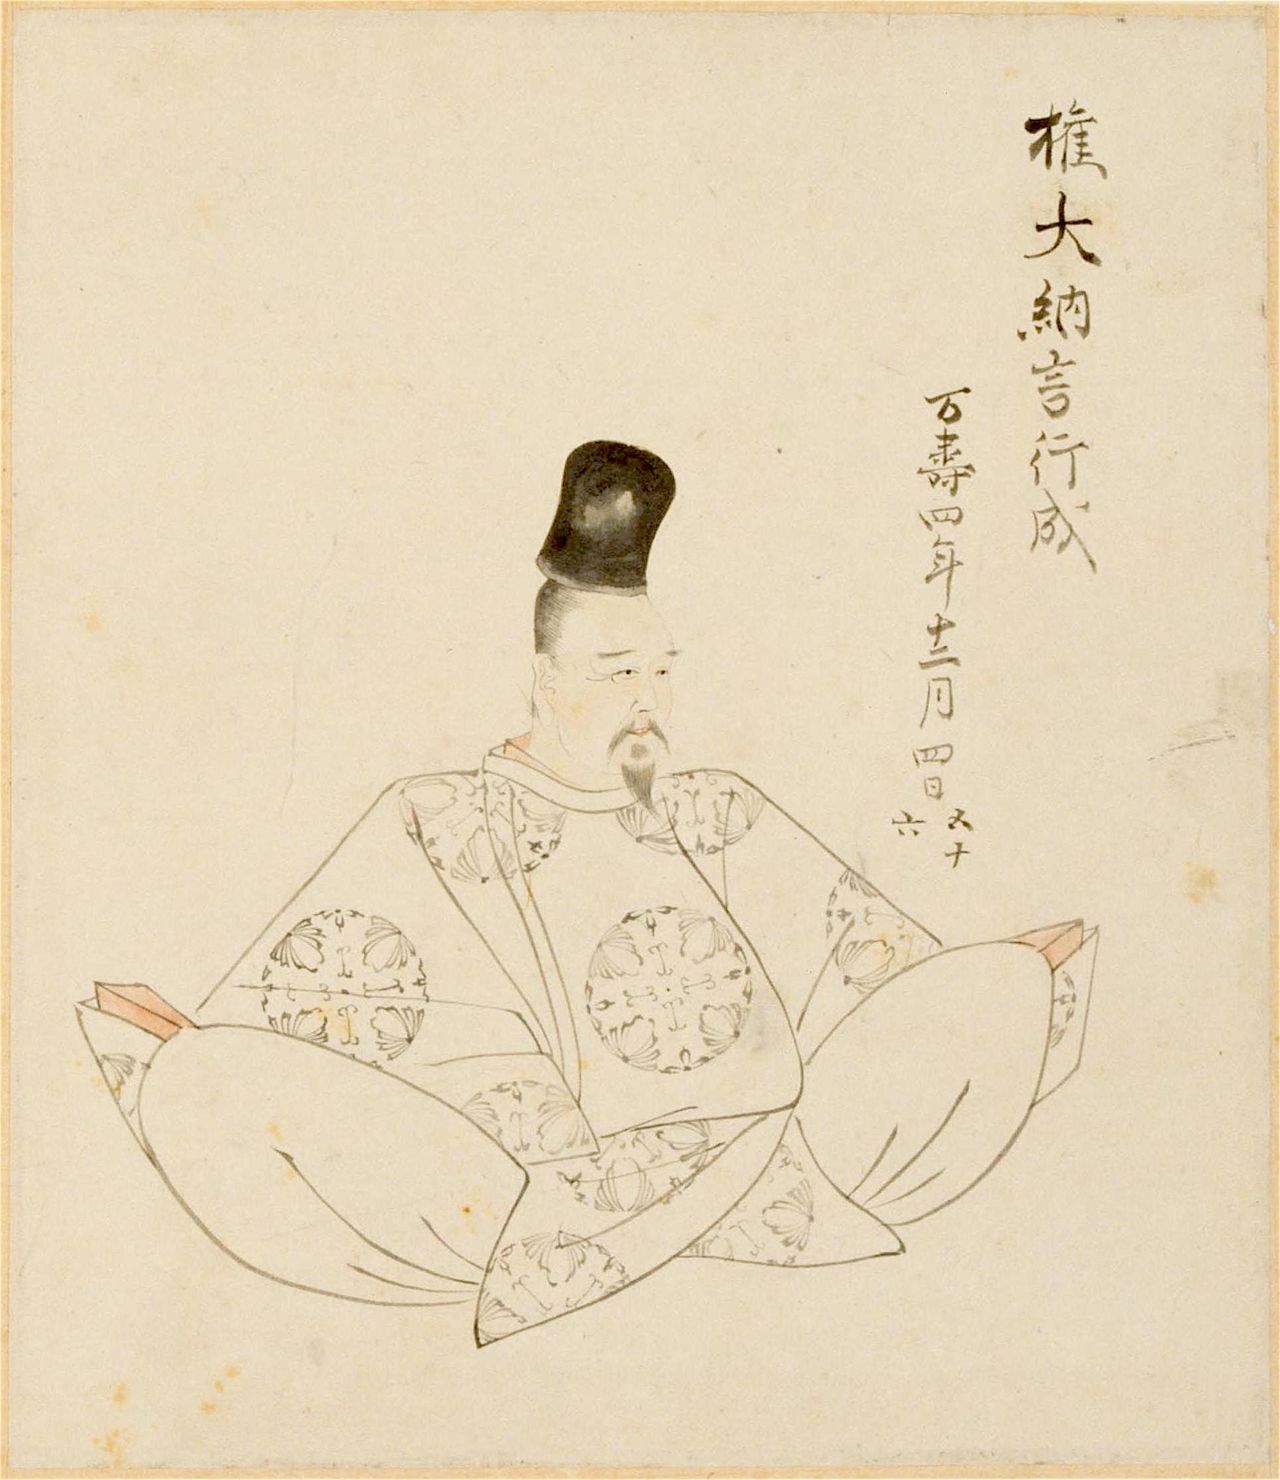 権大納言行成
万壽四年十二月四日 五十六